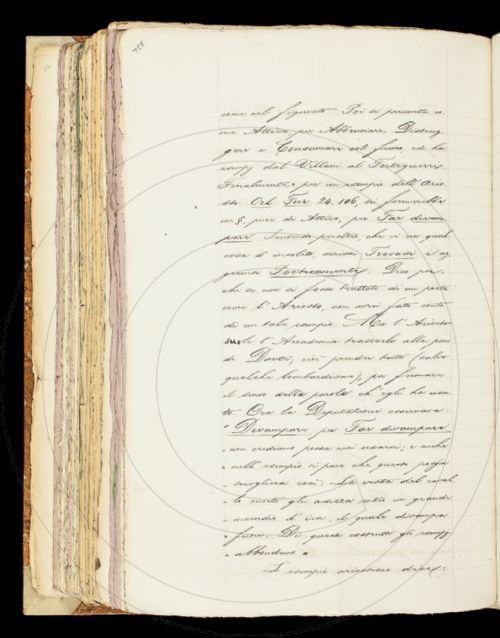 come nel figurato. Poi si presenta co-
me Attivo per Abbruciare, Distrug-
gere e Consumare col fuoco, ed ha
esempj dal Villani al Forteguerri.
Finalmente per un esempio dell' Ario-
sto Orl. Fur. 24. 106, si formerebbe
un §. pure di Attivo, per Far divam-
pare. Sentendo peraltro, che ci ha qual
cosa d' insolito, scrisse Trovasi e ag
giunse Poeticamente. Dico poi,
che se non si fosse trattato di un poeta
come l' Ariosto, non avrei fatto conto
di un tale esempio. Ma l' Ariosto
suole l' Accademia trattarlo alla pari
di Dante, cioè prender tutto (salvo
qualche lombardismo), per fermare
il senso della parola ch' egli ha usa-
to. Ora la Deputazione osservava:
" Divampare per Far divampare
" non crediamo possa mai usarsi; e anche
" nell' esempio ci pare che questo possa
" sciogliersi così: La vista del caval-
" lo
" incendio d' ira, il quale divampa
" fuori. Di questi costrutti gli esempj
" abbondano "
L' esempio ariostesco dice: